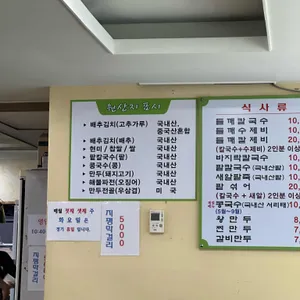 원산지 표시
배추김치(고춧가루) 국내산,
중국산혼합
배추김치(배추) 국내산
현미 / 찹쌀 / 쌀 국내산
팥칼국수(팥) 국내산
콩국수(콩) 국내산
만두(돼지고기) 국내산
해물파전(오징어) 국내산
만두전골(우삼겹) 미 국
매월 첫째 셋째 주
화 요 일 은
정기 휴일 입니다.
지평막걸리
5000
식 사 류
들깨칼국수 10,
들깨수제비 10,
(칼국수+수제비) 2인분 이상
바지락칼국수 10,
팥칼국수(국내산팥)
새알팥죽(국내산팥)
팥 섞 어
(칼국수 + 새알) 2인분 이상
콩국수(국내산 서리태) 10,
(5월~9월)
왕 만 두
찐 만 두
갈비만두